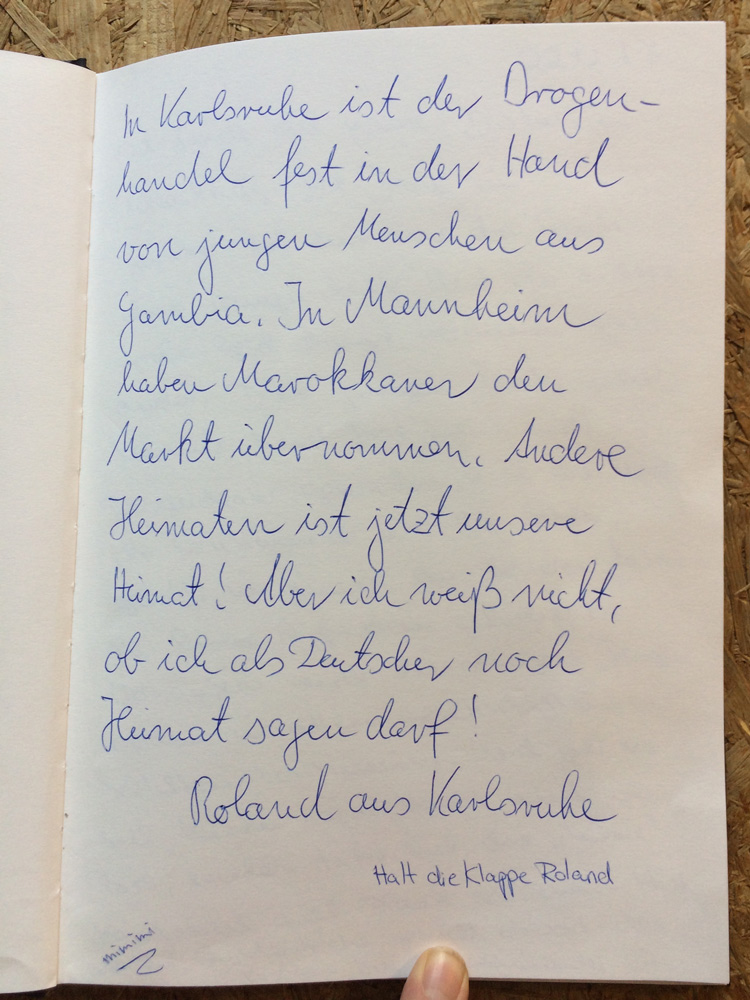 In Karlsruhe ist der Drogen-
handel fest in der Hand
von jungen Menschen aus
Gambia. In Mannheim
haben Marokkaner den
Markt übernommen. Andere
Heimaten ist jetzt unsere
Heimat! Aber ich weiß nicht,
ob ich als Deutscher noch
Heimat sagen darf!
Roland aus Karlsruhe
Halt die Klappe Roland
mimimi